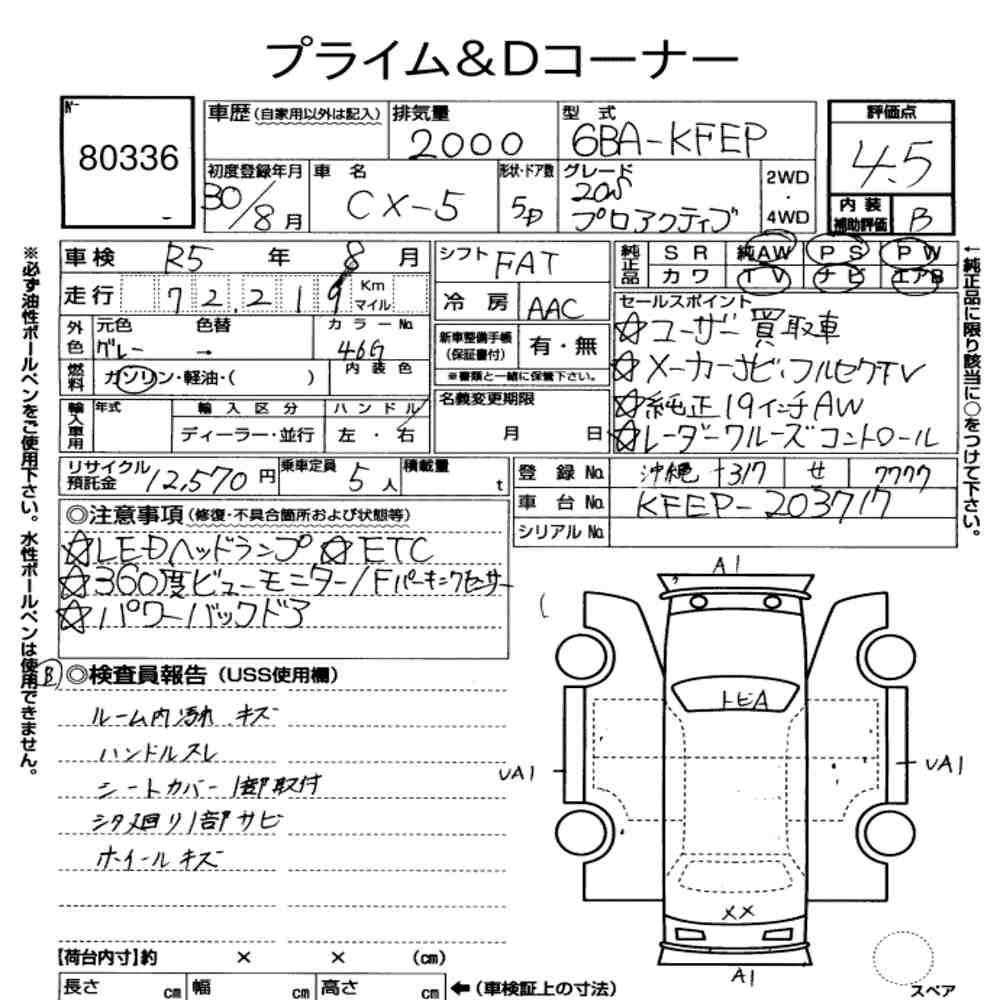 プライム&Dコーナー
No.
80336
車歴(自家用以外は記入)
排気量
2000
型式
6BA-KFEP
評価点
4.5
初度登録年月
30/8月
車名
CX-5
形状・ドア数
5D
グレード
20S
プロアクティブ
2WD
・
4WD
内装
補助評価
B
車検 R5年 8月
シフト FAT
純正品
SR 純AW PS PW
カワ TV ナビ エアB
走行 72,219 Km マイル
冷房 AAC
セールスポイント
☆ユーザー買取車
☆メーカーナビ・フルセグTV
☆純正19インチAW
☆レーダークルーズコントロール
外色
元色 色替
グレー →
カラーNo.
46G
新車整備手帳
(保証書付)
有・無
※書類と一緒に保管下さい。
燃料
ガソリン・軽油・( )
内装色
名義変更期限
月 日
輸入車用
年式
輸入区分
ディーラー・並行
ハンドル
左・右
リサイクル預託金 12,570円
乗車定員 5人
積載量 t
登録No. 沖縄 317 せ 7777
車台No. KFEP-203717
シリアルNo.
◎注意事項(修復・不具合箇所および状態等)
☆LEDヘッドランプ ☆ETC
☆360度ビューモニター/Fパーキングセンサー
☆パワーバックドア
B
◎検査員報告(USS使用欄)
ルーム内汚れ キズ
ハンドルスレ
シートカバー1部取付
シタ廻り1部サビ
ホイールキズ
A1
トビA
UA1
UA1
XX
A1
スペア
【荷台内寸】約 × × (cm)
長さ cm 幅 cm 高さ cm ←(車検証上の寸法)
※必ず油性ボールペンをご使用下さい。水性ボールペンは使用できません。
←純正品に限り該当に○をつけて下さい。